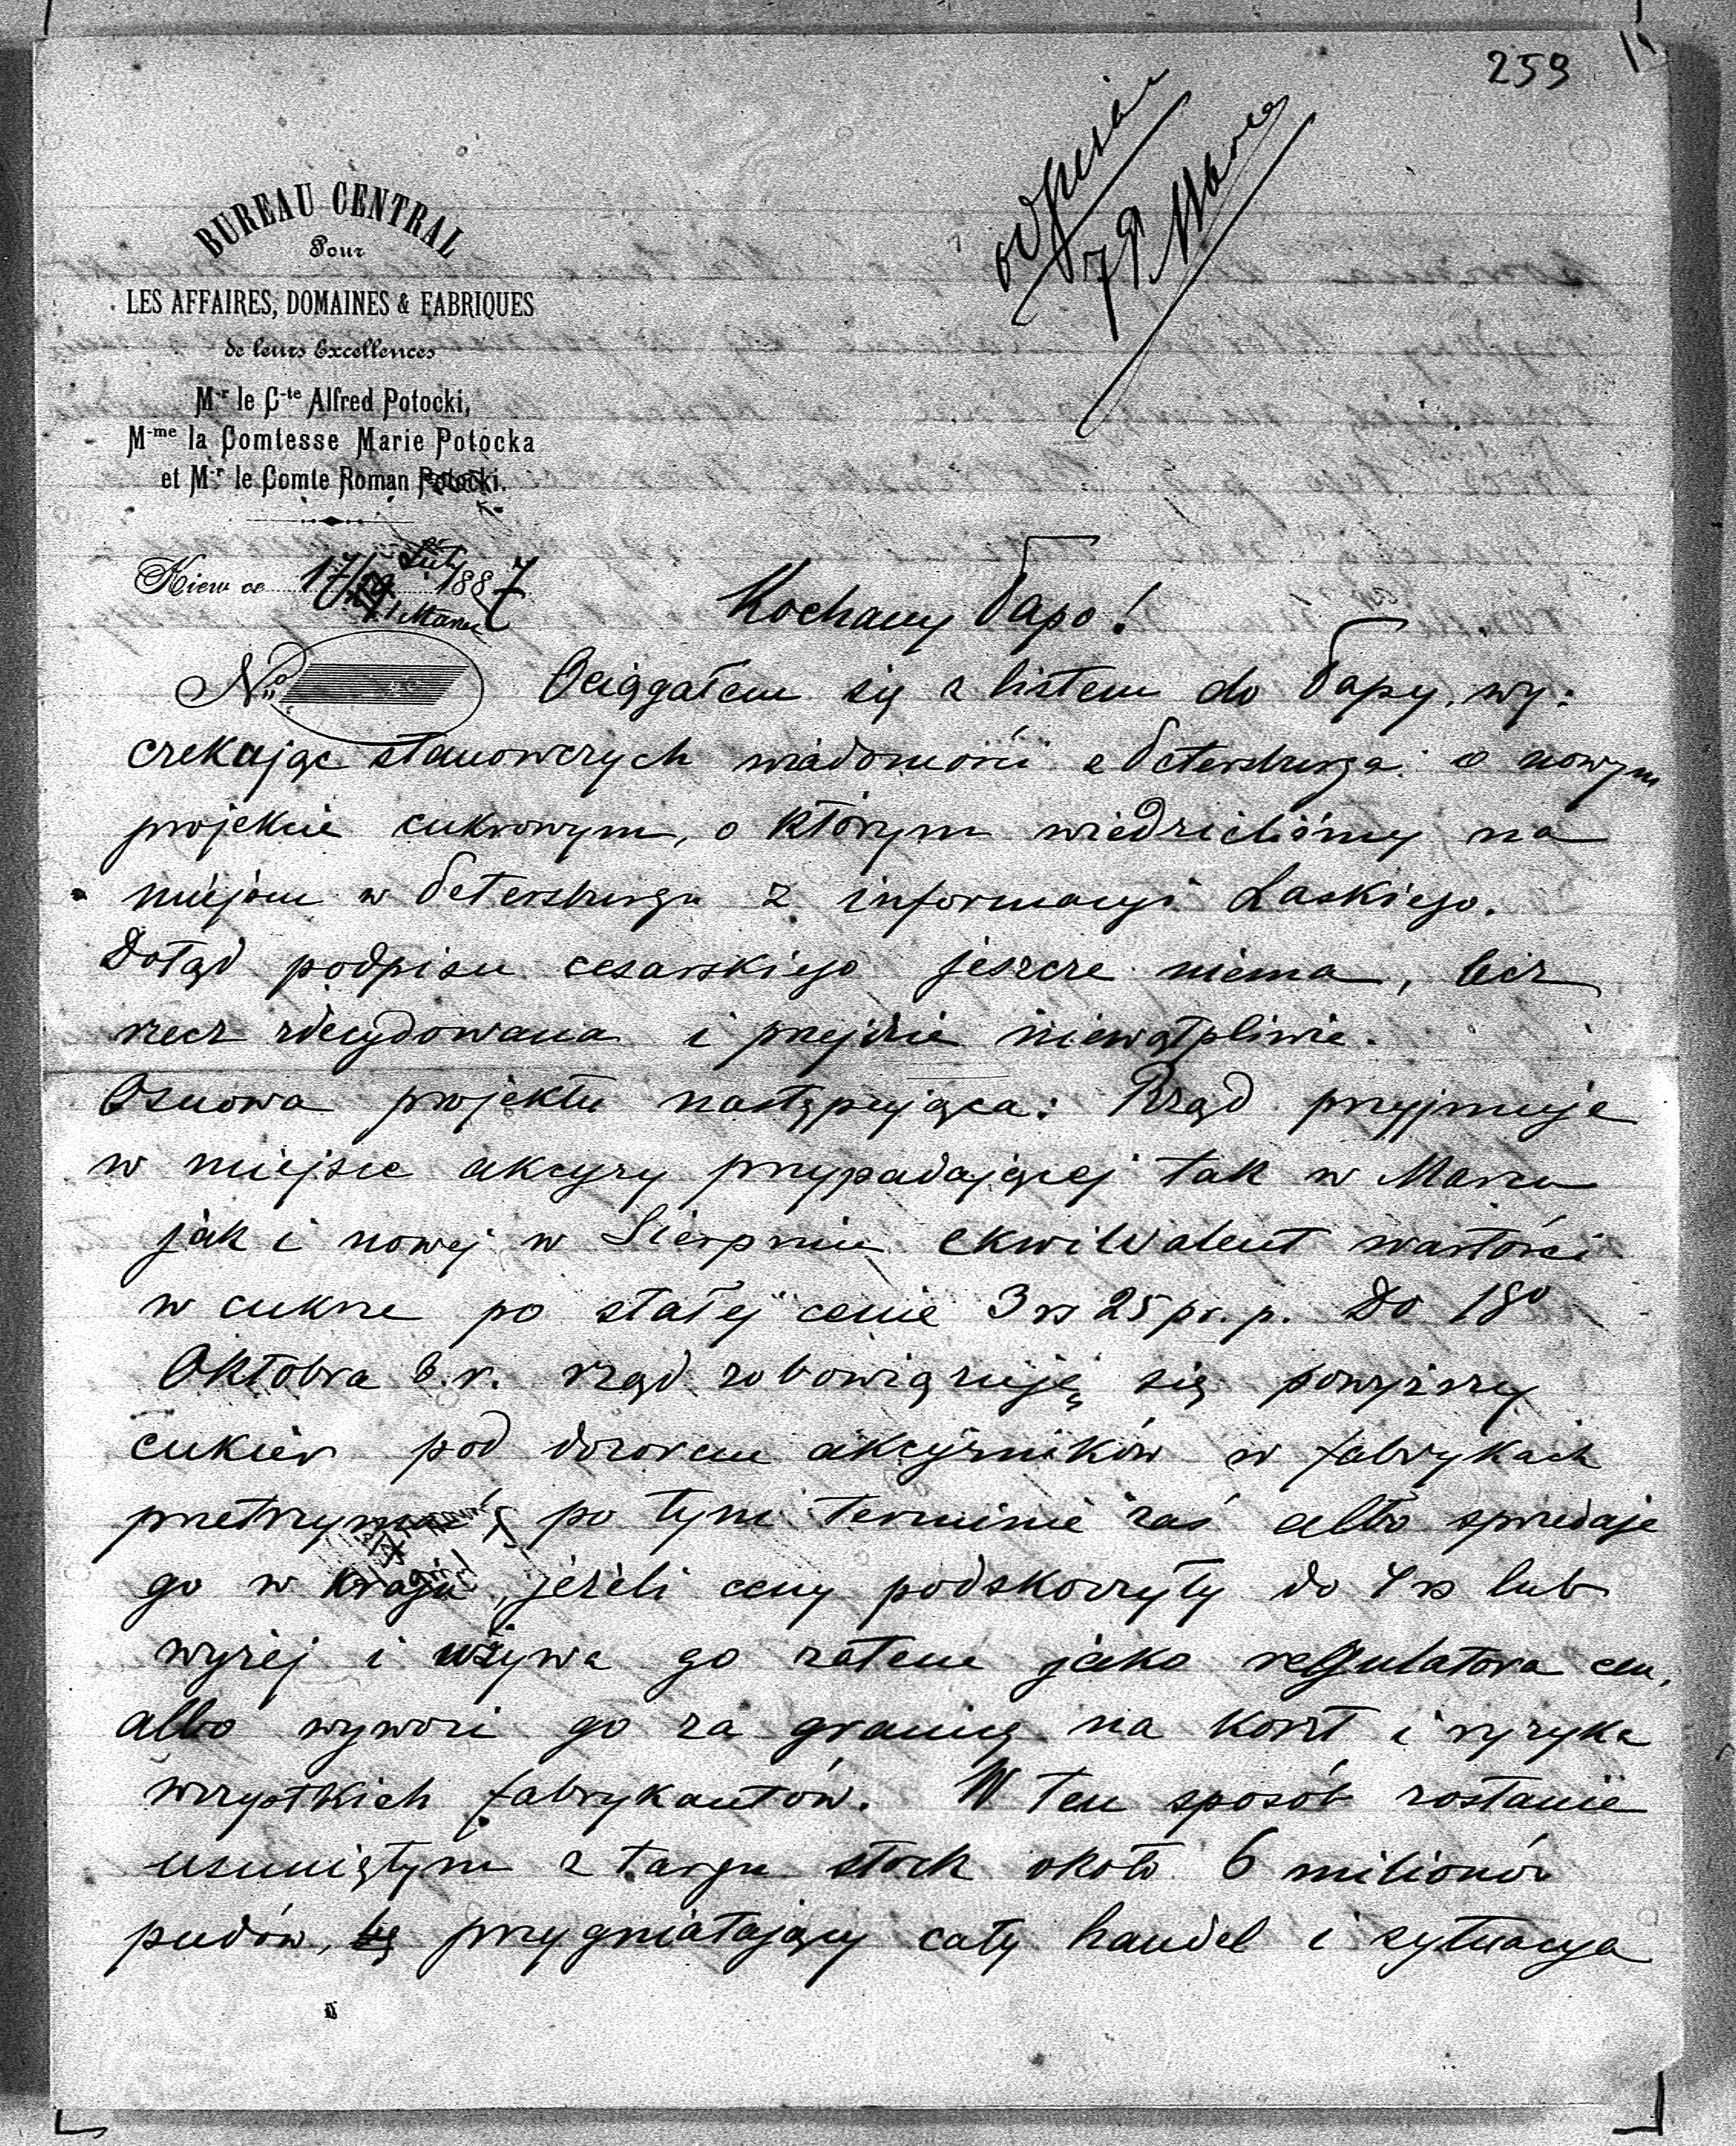 259
odpisan
7go Marca
BUREAU CENTRAL
Pour
LES AFFAIRES, DOMAINES & FABRIQUES
de leurs Excellences
M-r le C-te Alfred Potocki,
M-me la Comtesse Marie Potocka
et M-r le Comte Roman Potocki.
Kiew ce 17/ Luty 1887
1 Marca
Kochany Papo!
No Ociągałem się z listem do Papy, wy:
czekując stanowczych wiadomości z Petersburga o nowym
projekcie cukrowym, o którym wiedzieliśmy na
miejscu w Petersburgu z informacyi Laskiego.
Dotąd podpisu cesarskiego jeszcze niema, lecz
rzecz zdecydowana i przejdzie niewątpliwie.
Osnowa projektu następująca: Rząd przyjmuje
w miejsce akcyzy przypadającej tak w Marcu
jak i nowej w Sierpniu ekwiwalent wartości
w cukrze po stałej cenie 3 rs 25 pr. p. Do 18o
Oktobra b.r. rząd zobowiązuje się powyższy
cukier pod dozorem akcyźników w fabrykach
przetrzymać, po tym terminie zaś albo sprzedaje
go w kraju, jeżeli ceny podskoczyły do 4 rs lub
wyżej i używa go zatem jako regulatora cen,
albo wywozi go za granicę na koszt i ryzyka
wszystkich fabrykantów. W ten sposób zostanie
usuniętym z targu stock około 6 milionów
pudów, przygniatający cały handel i sytuacya